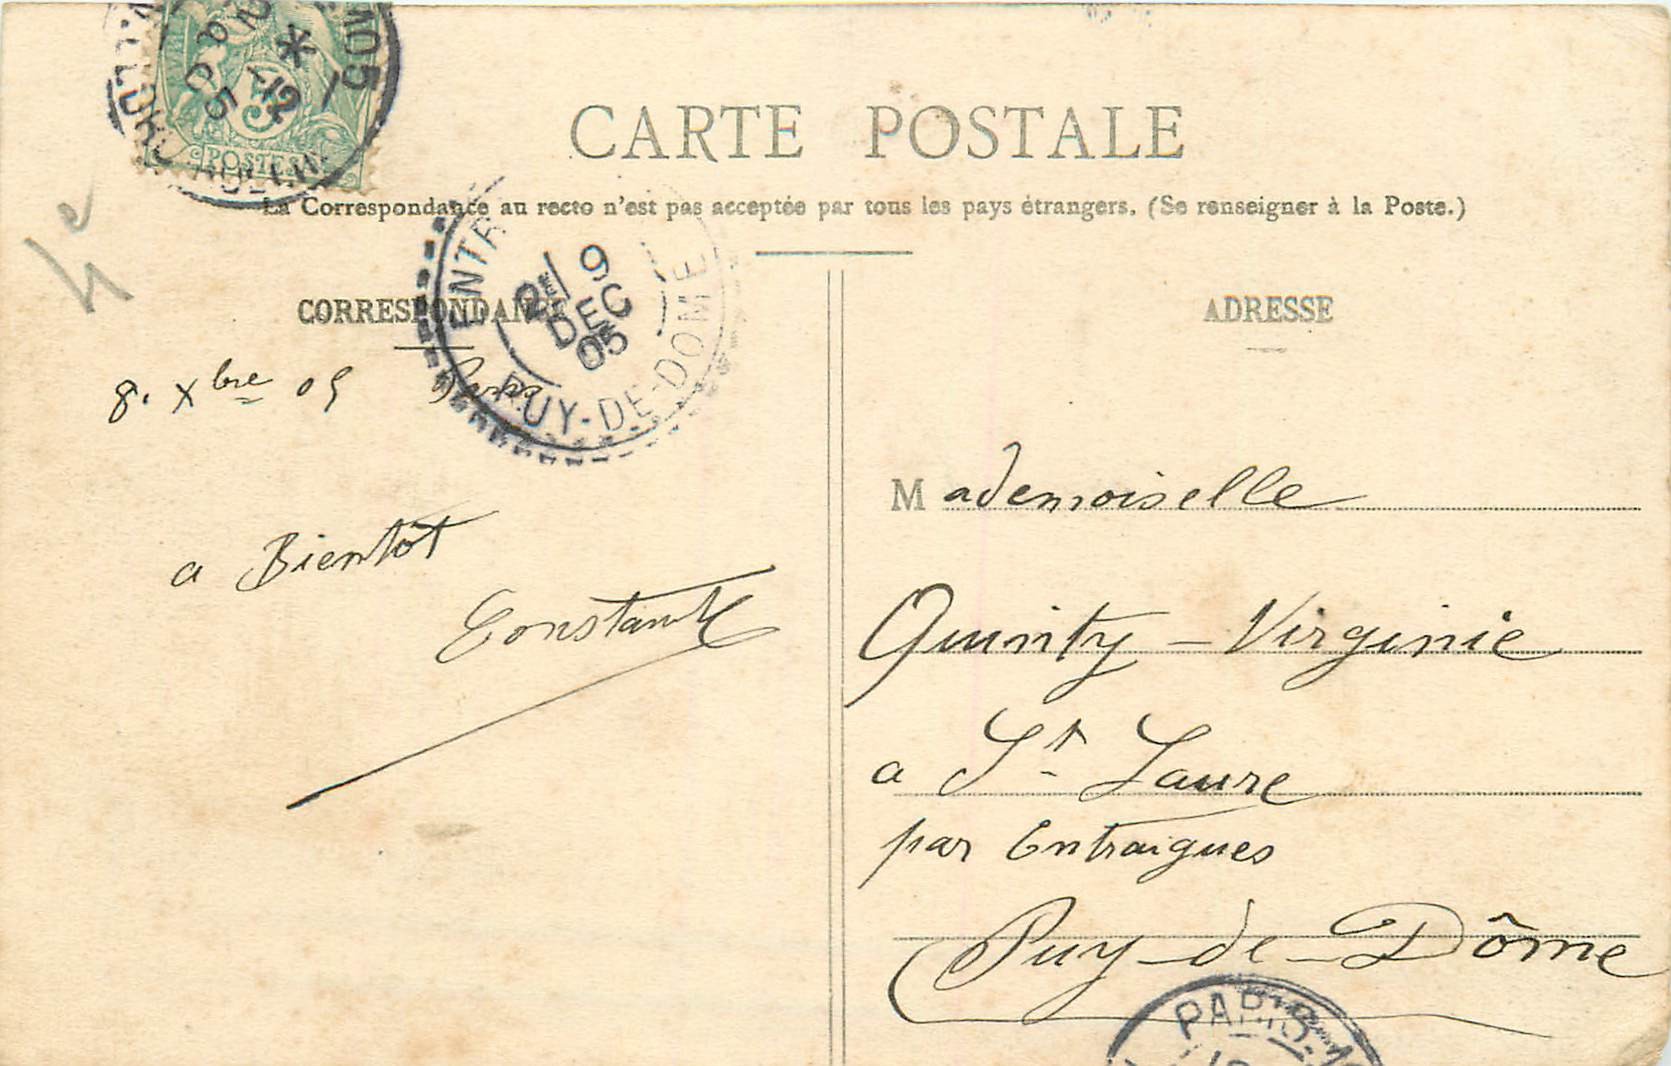 105
*
-12
8
05
5
POSTES
4e
CARTE POSTALE
La Correspondance au recto n'est pas acceptée par tous les pays étrangers. (Se renseigner à la Poste.)
ENTR
9
DEC
05
PUY-DE-DOME
CORRESPONDANCE
8. Xbre 05 Paris
a Bientôt
ADRESSE
Mademoiselle
Quinty - Virginie
a St Laure
par Entraigues
Puy-de-Dôme
PARIS